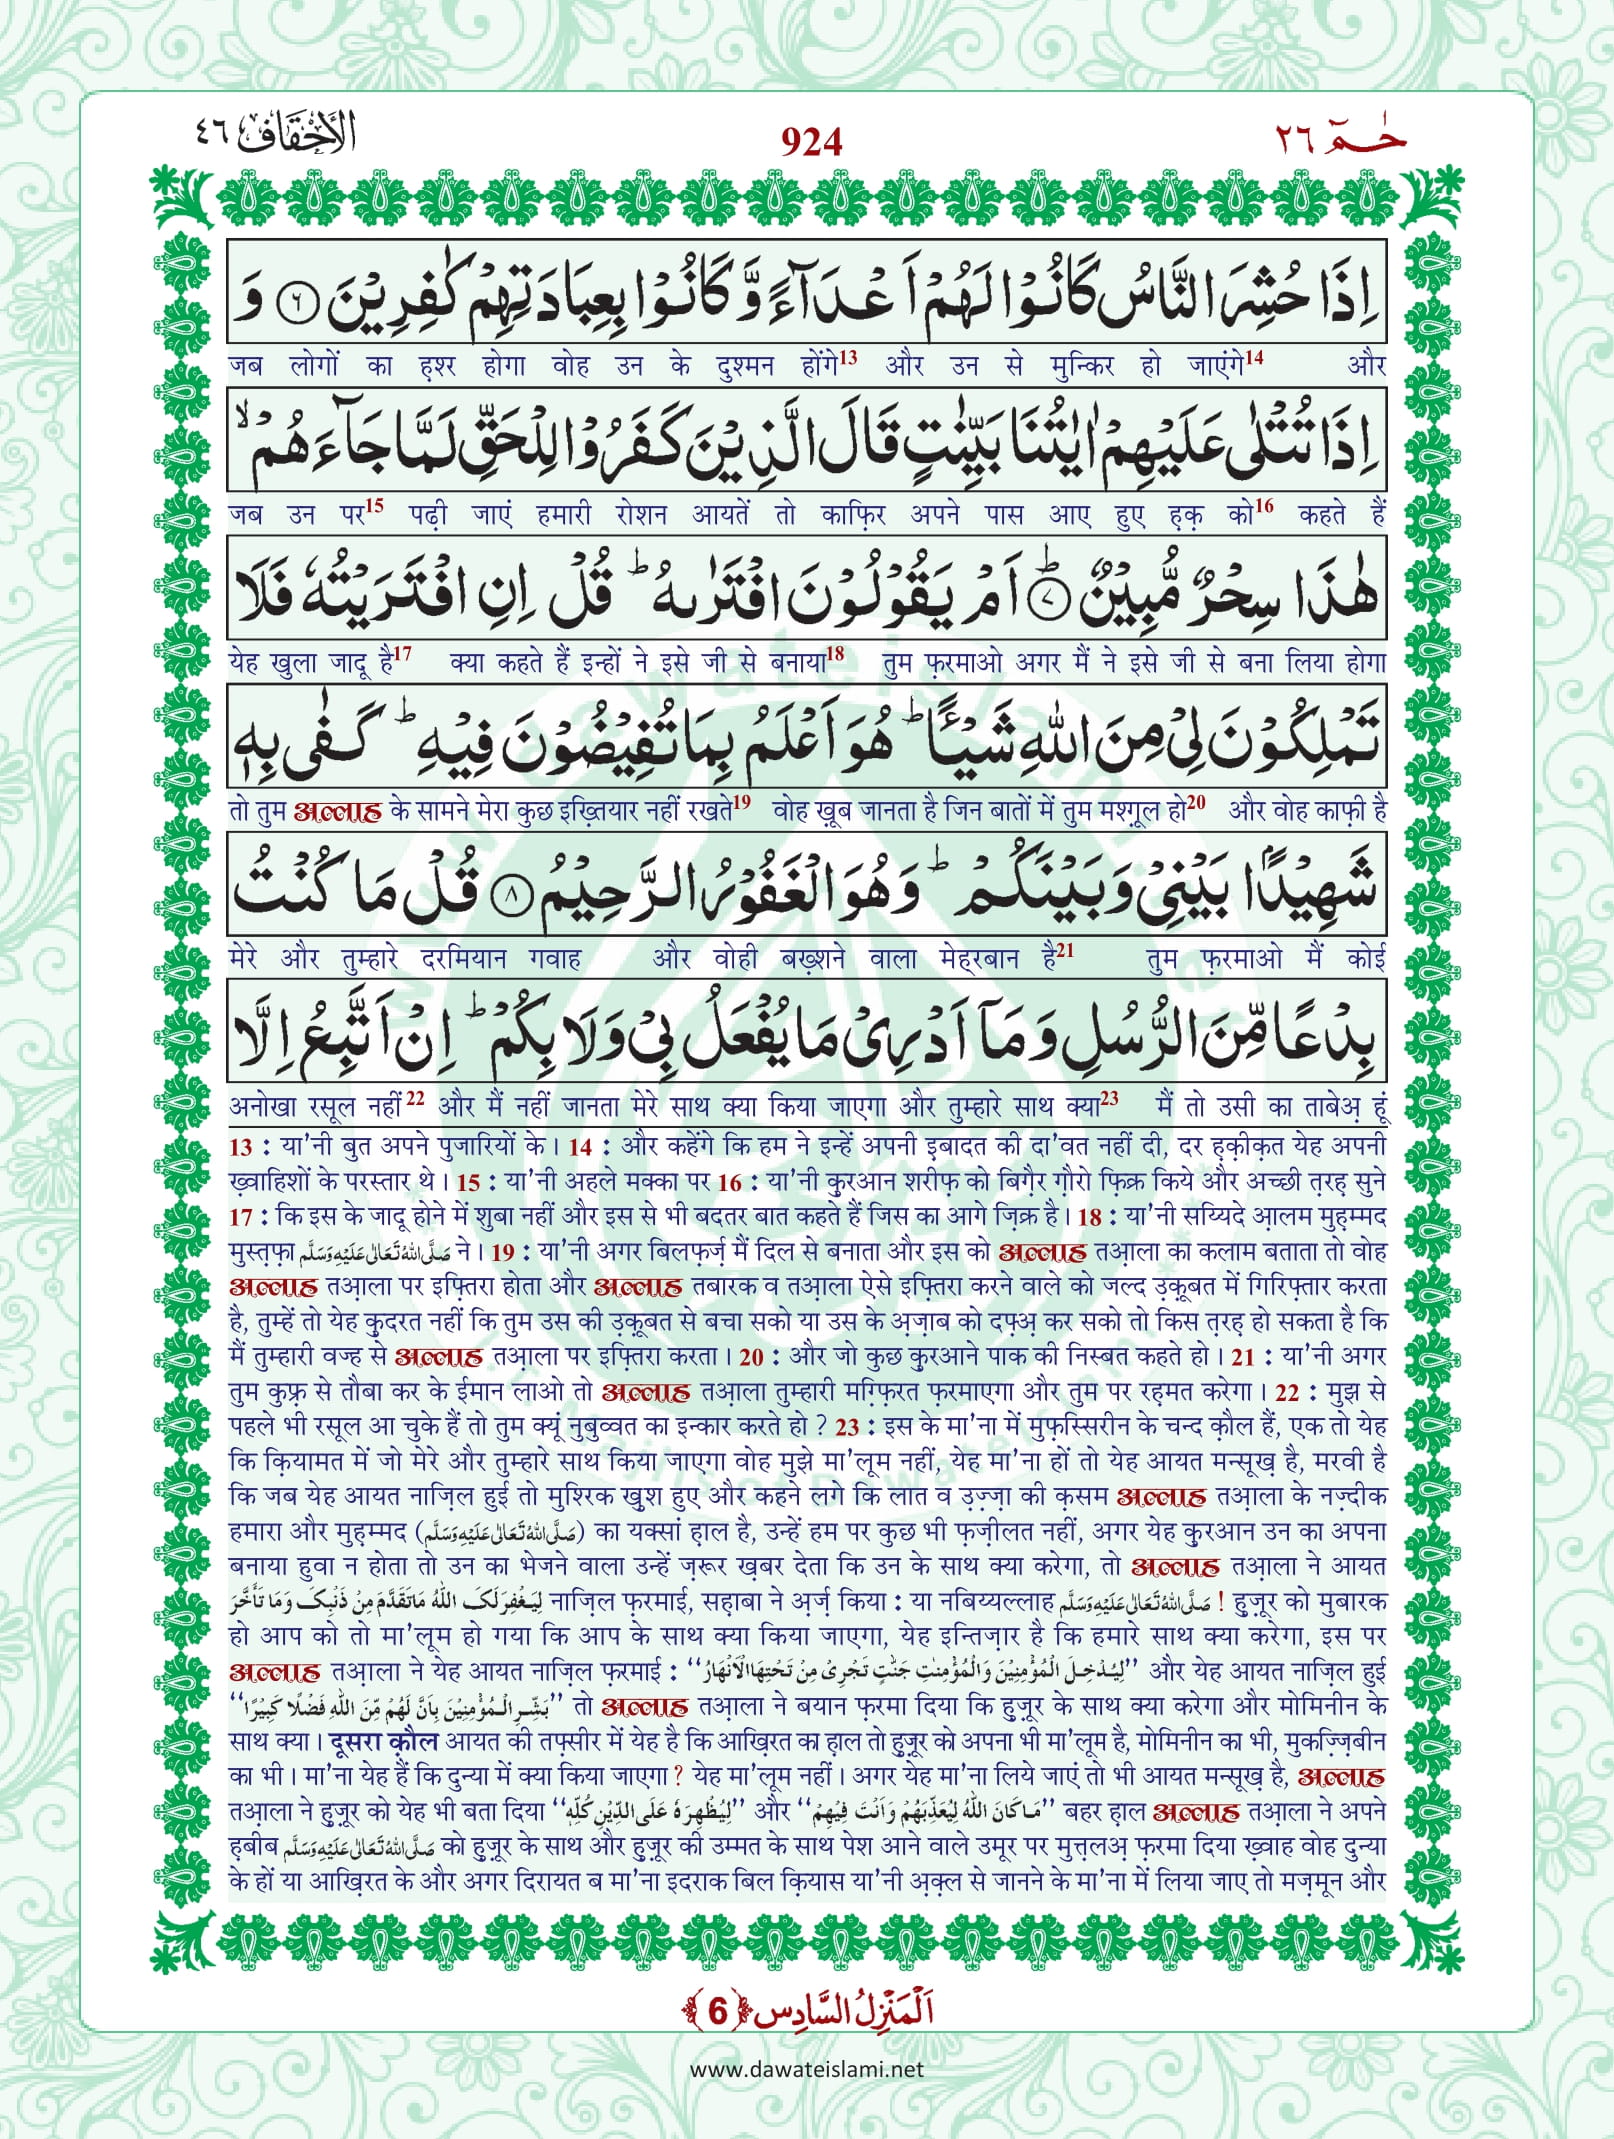 الأحقاف ٤٦ 924 حٰمٓ ٢٦
اِذَا حُشِرَ النَّاسُ كَانُوْا لَهُمْ اَعْدَآءً وَّ كَانُوْا بِعِبَادَتِهِمْ كٰفِرِیْنَ ﴿۶﴾ وَ
जब लोगों का ह़श्र होगा वोह उन के दुश्मन होंगे13 और उन से मुन्किर हो जाएंगे14 और
اِذَا تُتْلٰى عَلَیْهِمْ اٰیٰتُنَا بَیِّنٰتٍ قَالَ الَّذِیْنَ كَفَرُوْا لِلْحَقِّ لَمَّا جَآءَهُمْ ۙ
जब उन पर15 पढ़ी जाएं हमारी रोशन आयतें तो काफ़िर अपने पास आए हुए ह़क़ को16 कहते हैं
هٰذَا سِحْرٌ مُّبِیْنٌ ﴿۷﴾ؕ اَمْ یَقُوْلُوْنَ افْتَرٰىهُ ؕ قُلْ اِنِ افْتَرَیْتُهٗ فَلَا
येह खुला जादू है17 क्या कहते हैं इन्हों ने इसे जी से बनाया18 तुम फ़रमाओ अगर मैं ने इसे जी से बना लिया होगा
تَمْلِكُوْنَ لِیْ مِنَ اللّٰهِ شَیْــٴًـا ؕ هُوَ اَعْلَمُ بِمَا تُفِیْضُوْنَ فِیْهِ ؕ كَفٰى بِهٖ
तो तुम अल्लाह के सामने मेरा कुछ इख़्तियार नहीं रखते19 वोह ख़ूब जानता है जिन बातों में तुम मश्ग़ूल हो20 और वोह काफ़ी है
شَهِیْدًۢا بَیْنِیْ وَ بَیْنَكُمْ ؕ وَ هُوَ الْغَفُوْرُ الرَّحِیْمُ ﴿۸﴾ قُلْ مَا كُنْتُ
मेरे और तुम्हारे दरमियान गवाह और वोही बख़्शने वाला मेह्रबान है21 तुम फ़रमाओ मैं कोई
بِدْعًا مِّنَ الرُّسُلِ وَ مَاۤ اَدْرِیْ مَا یُفْعَلُ بِیْ وَ لَا بِكُمْ ؕ اِنْ اَتَّبِعُ اِلَّا
अनोखा रसूल नहीं22 और मैं नहीं जानता मेरे साथ क्या किया जाएगा और तुम्हारे साथ क्या23 मैं तो उसी का ताबेअ़ हूं
13 : या'नी बुत अपने पुजारियों के। 14 : और कहेंगे कि हम ने इन्हें अपनी इबादत की दा'वत नहीं दी, दर ह़क़ीक़त येह अपनी
ख़्वाहिशों के परस्तार थे। 15 : या'नी अहले मक्का पर 16 : या'नी क़ुरआन शरीफ़ को बिग़ैर ग़ौरो फ़िक्र किये और अच्छी त़रह़ सुने
17 : कि इस के जादू होने में शुबा नहीं और इस से भी बदतर बात कहते हैं जिस का आगे ज़िक्र है। 18 : या'नी सय्यिदे आ़लम मुह़म्मद
मुस्त़फ़ा صَلَّى اللّٰهُ تَعَالٰى عَلَيْهِ وَسَلَّم ने। 19 : या'नी अगर बिलफ़र्ज़ मैं दिल से बनाता और इस को अल्लाह तआ़ला का कलाम बताता तो वोह
अल्लाह तआ़ला पर इफ़्तिरा होता और अल्लाह तबारक व तआ़ला ऐसे इफ़्तिरा करने वाले को जल्द उ़क़ूबत में गिरिफ़्तार करता
है, तुम्हें तो येह क़ुदरत नहीं कि तुम उस की उ़क़ूबत से बचा सको या उस के अ़ज़ाब को दफ़्अ़ कर सको तो किस त़रह़ हो सकता है कि
मैं तुम्हारी वज्ह से अल्लाह तआ़ला पर इफ़्तिरा करता। 20 : और जो कुछ क़ुरआने पाक की निस्बत कहते हो। 21 : या'नी अगर
तुम कुफ़्र से तौबा कर के ईमान लाओ तो अल्लाह तआ़ला तुम्हारी मग़्फ़िरत फ़रमाएगा और तुम पर रह़मत करेगा। 22 : मुझ से
पहले भी रसूल आ चुके हैं तो तुम क्यूं नुबुव्वत का इन्कार करते हो ? 23 : इस के मा'ना में मुफ़स्सिरीन के चन्द क़ौल हैं, एक तो येह
कि क़ियामत में जो मेरे और तुम्हारे साथ किया जाएगा वोह मुझे मा'लूम नहीं, येह मा'ना हों तो येह आयत मन्सूख़ है, मरवी है
कि जब येह आयत नाज़िल हुई तो मुश्रिक ख़ुश हुए और कहने लगे कि लात व उ़ज़्ज़ा की क़सम अल्लाह तआ़ला के नज़्दीक
हमारा और मुह़म्मद (صَلَّى اللّٰهُ تَعَالٰى عَلَيْهِ وَسَلَّم) का यक्सां ह़ाल है, उन्हें हम पर कुछ भी फ़ज़ीलत नहीं, अगर येह क़ुरआन उन का अपना
बनाया हुवा न होता तो उन का भेजने वाला उन्हें ज़रूर ख़बर देता कि उन के साथ क्या करेगा, तो अल्लाह तआ़ला ने आयत
لِيَغْفِرَ لَكَ اللّٰهُ مَا تَقَدَّمَ مِنْ ذَنْبِكَ وَمَا تَأَخَّرَ नाज़िल फ़रमाई, सह़ाबा ने अ़र्ज़ किया : या नबिय्यल्लाह صَلَّى اللّٰهُ تَعَالٰى عَلَيْهِ وَسَلَّم ! हुज़ूर को मुबारक
हो आप को तो मा'लूम हो गया कि आप के साथ क्या किया जाएगा, येह इन्तिज़ार है कि हमारे साथ क्या करेगा, इस पर
अल्लाह तआ़ला ने येह आयत नाज़िल फ़रमाई : ”لِيُدْخِلَ الْمُؤْمِنِيْنَ وَالْمُؤْمِنٰتِ جَنّٰتٍ تَجْرِيْ مِنْ تَحْتِهَا الْاَنْهَارُ“ और येह आयत नाज़िल हुई
”بَشِّرِ الْمُؤْمِنِيْنَ بِاَنَّ لَهُمْ مِّنَ اللّٰهِ فَضْلًا كَبِيْرًا“ तो अल्लाह तआ़ला ने बयान फ़रमा दिया कि हुज़ूर के साथ क्या करेगा और मोमिनीन के
साथ क्या। दूसरा क़ौल आयत की तफ़्सीर में येह है कि आख़िरत का ह़ाल तो हुज़ूर को अपना भी मा'लूम है, मोमिनीन का भी, मुकज़्ज़िबीन
का भी। मा'ना येह हैं कि दुन्या में क्या किया जाएगा ? येह मा'लूम नहीं। अगर येह मा'ना लिये जाएं तो भी आयत मन्सूख़ है, अल्लाह
तआ़ला ने हुज़ूर को येह भी बता दिया ”لِيُظْهِرَهٗ عَلَى الدِّيْنِ كُلِّهٖ“ और ”مَا كَانَ اللّٰهُ لِيُعَذِّبَهُمْ وَاَنْتَ فِيْهِمْ“ बहर ह़ाल अल्लाह तआ़ला ने अपने
ह़बीब صَلَّى اللّٰهُ تَعَالٰى عَلَيْهِ وَسَلَّم को हुज़ूर के साथ और हुज़ूर की उम्मत के साथ पेश आने वाले उमूर पर मुत्त़लअ़ फ़रमा दिया ख़्वाह वोह दुन्या
के हों या आख़िरत के और अगर दिरायत ब मा'ना इदराक बिल क़ियास या'नी अ़क़्ल से जानने के मा'ना में लिया जाए तो मज़्मून और
اَلْمَنْزِلُ السَّادِس ﴿6﴾
www.dawateislami.net